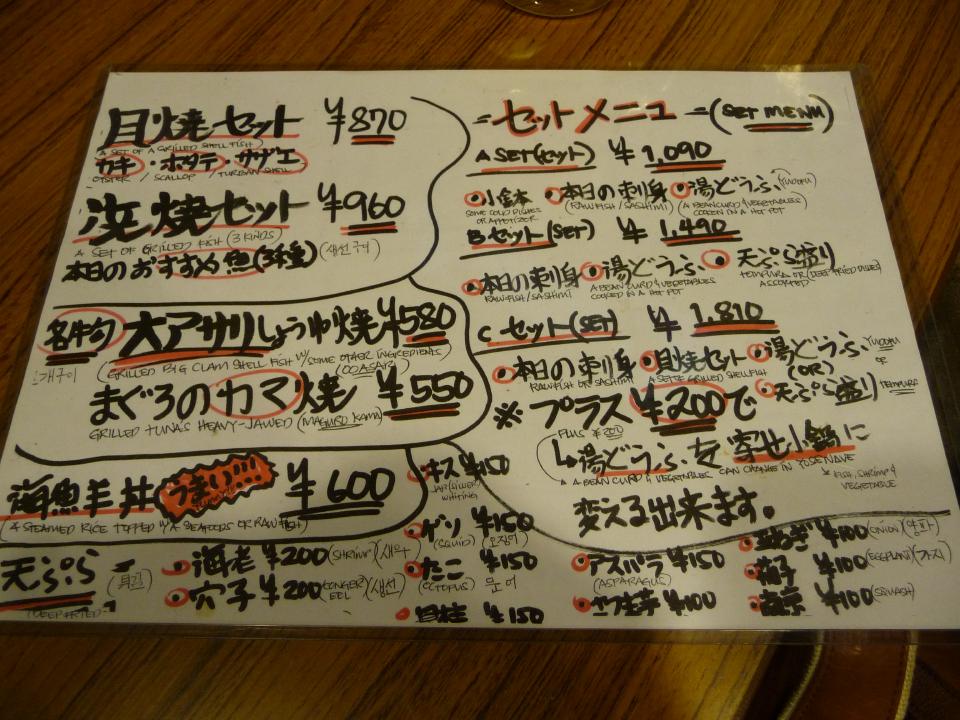 貝焼セット ¥870
(A SET OF A GRILLED SHELL FISH)
カキ・ホタテ・サザエ
OYSTER / SCALLOP / TURBAN SHELL
浜焼セット ¥960
A SET OF GRILLED FISH (3 KINDS) (생선구이)
本日のおすすめ魚(3種)
大アサリしょうゆ焼 ¥580
(GRILLED BIG CLAM SHELL FISH W/SOME OTHER INGREDIENTS)
(OOASARI)
まぐろのカマ焼 ¥550
GRILLED TUNA'S HEAVY-JAWED (MAGURO KAMA)
海魚羊丼 うまい!!! ¥600
A STEAMED RICE TOPPED W/A SEAFOODS OR RAW FISH)
天ぷら (튀김)
(DEEP FRIED)
海老 ¥200 (SHRIMP) (새우)
穴子 ¥200 (CONGER EEL) (생선)
キス ¥150
WHITING
ゲソ ¥150
(SQUID) (오징어)
たこ ¥150
(OCTOPUS) 문어
貝柱 ¥150
=セットメニュー=(SET MENU)
A SET(セット) ¥1,090
小鉢 本日の刺身 湯どうふ (YUDOFU)
SOME COLD DISHES OR APPETIZER (RAW FISH/SASHIMI) (A BEAN CURD & VEGETABLES) COOKED IN A HOT POT
Bセット(SET) ¥1,490
本日の刺身 湯どうふ 天ぷら盛り
RAW FISH/SASHIMI A BEAN CURD & VEGETABLES COOKED IN A HOT POT TEMPURA OR (DEEP FRIED DISHES) ASSORTED
C セット(SET) ¥1,810
本日の刺身 貝焼セット 湯どうふ YUDOFU
RAW FISH OR SASHIMI A SET OF GRILLED SHELLFISH (OR) OR
天ぷら盛り TEMPURA
※プラス¥200で
PLUS ¥200
↳湯どうふを寄せ小鍋に
A BEAN CURD & VEGETABLES CAN CHANGE IN YOSENAVE
* FISH, SHRIMP & VEGETABLE
変える出来ます。
アスパラ ¥150
(ASPARAGUS)
さつま芋 ¥100
玉ねぎ ¥100 (ONION) (양파)
茄子 ¥100 (EGGPLANT) (가지)
南京 ¥100 (SQUASH)